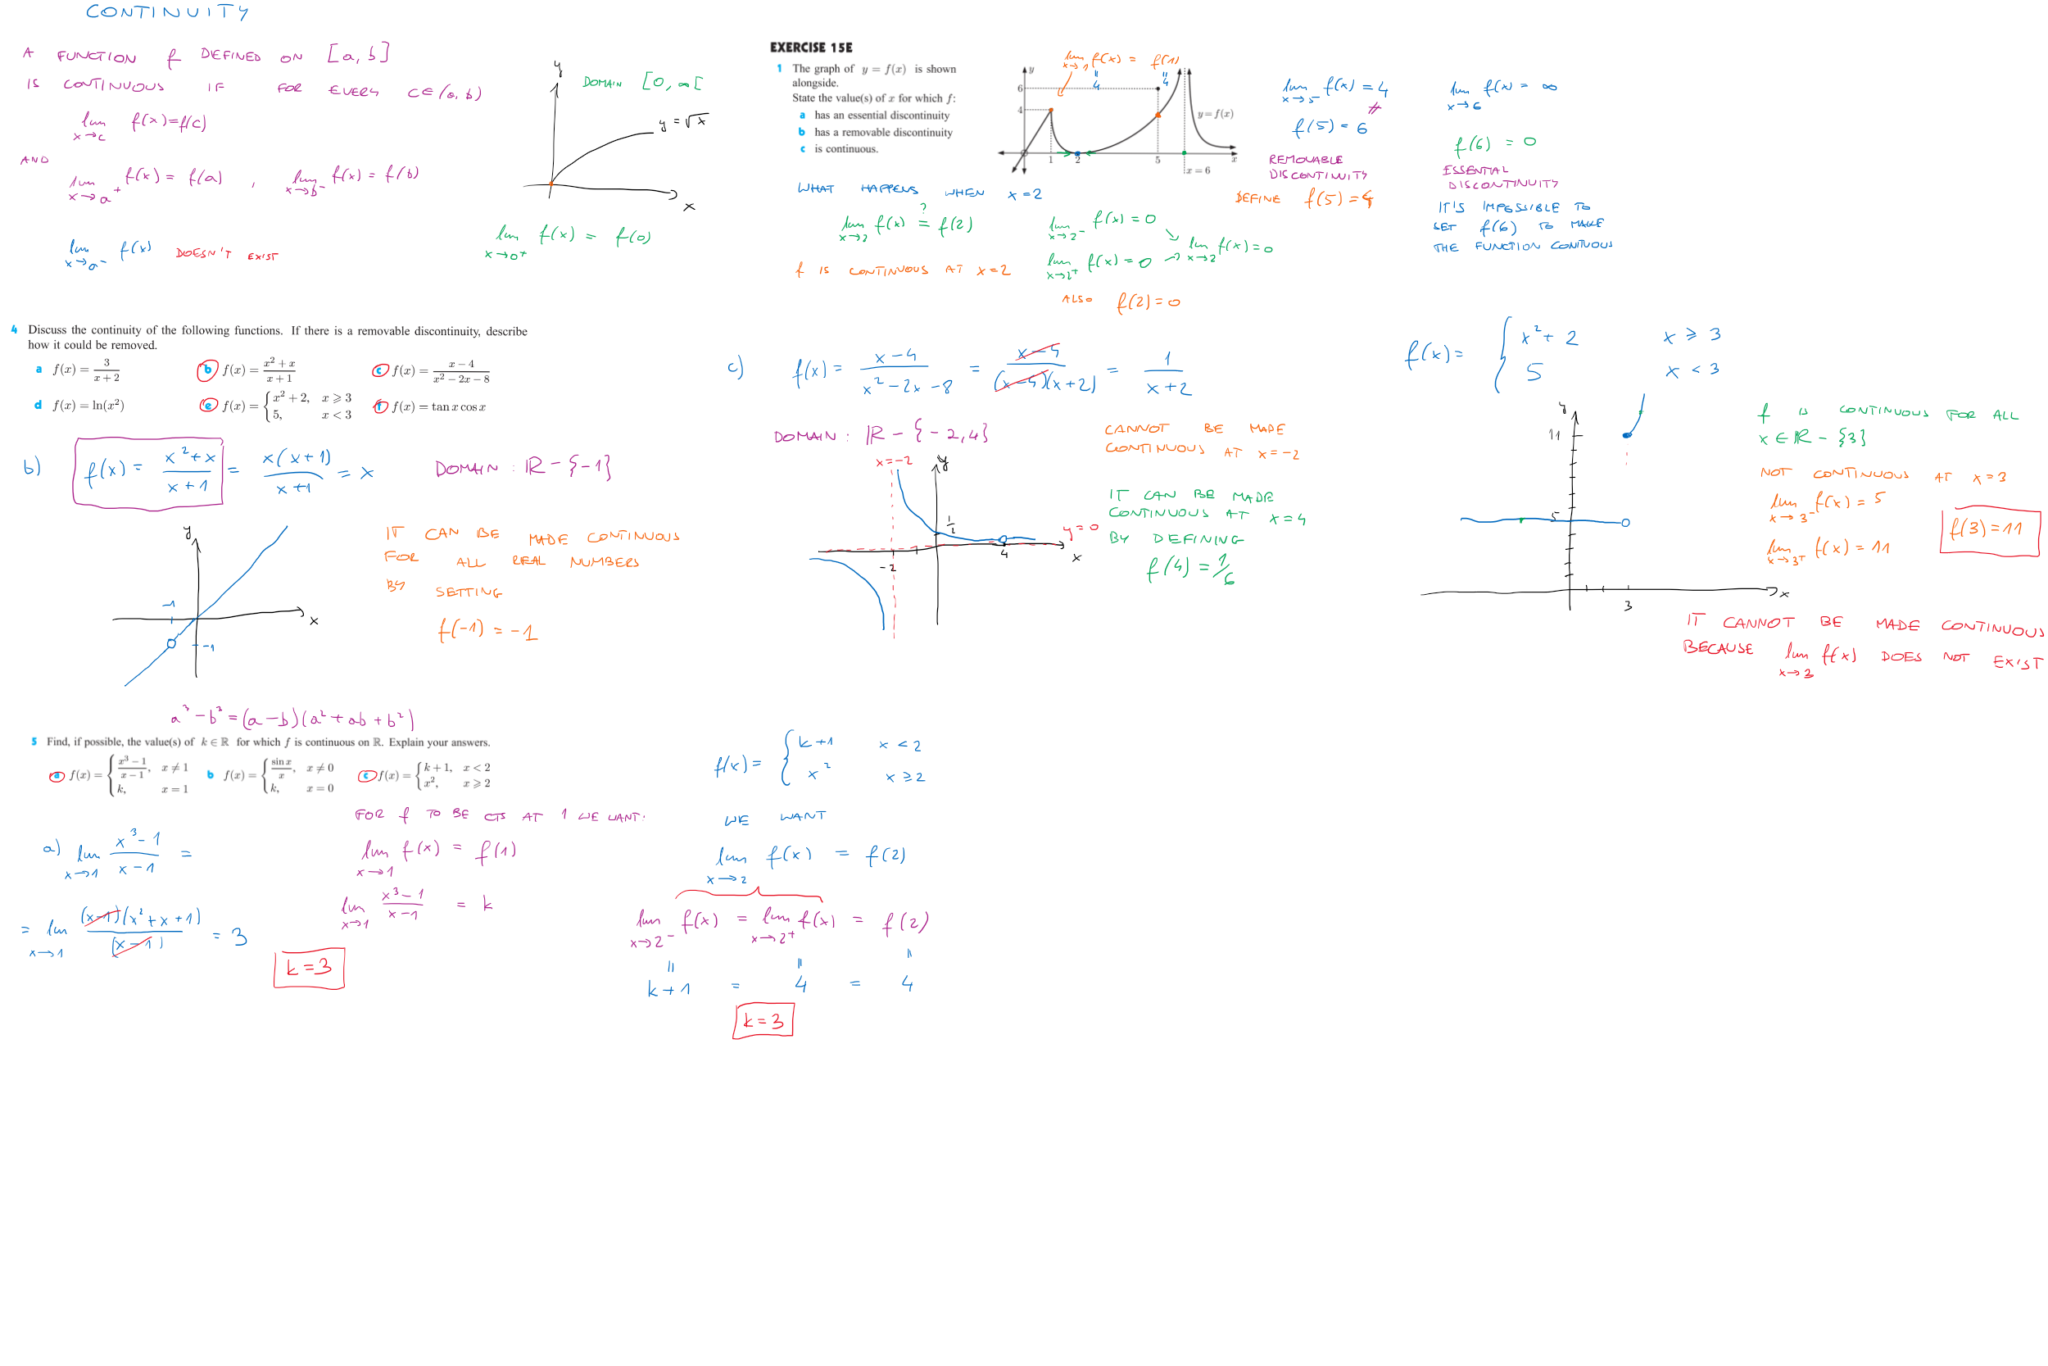 CONTINUITY
A FUNCTION f DEFINED ON [a, b]
IS CONTINUOUS IF FOR EVERY c∈(a, b)
lim x→c f(x)=f(c)
AND
lim x→a⁺ f(x) = f(a) , lim x→b⁻ f(x) = f(b)
lim x→a⁻ f(x) DOESN'T EXIST
y
DOMAIN [0, ∞[
y = √x
x
lim x→0⁺ f(x) = f(0)
EXERCISE 15E
1 The graph of y = f(x) is shown
alongside.
State the value(s) of x for which f:
a has an essential discontinuity
b has a removable discontinuity
c is continuous.
lim x→1 f(x) = f(1)
4 4
y
6
4
y = f(x)
1 2 5 x
x = 6
WHAT HAPPENS WHEN x=2
lim x→2 f(x) ?= f(2)
f IS CONTINUOUS AT x=2
lim x→2⁻ f(x) = 0
lim x→2⁺ f(x) = 0 → lim x→2 f(x) = 0
ALSO f(2) = 0
lim x→5 f(x) = 4
≠
f(5) = 6
REMOVABLE
DISCONTINUITY
DEFINE f(5) = 4
lim x→6 f(x) = ∞
f(6) = 0
ESSENTIAL
DISCONTINUITY
IT'S IMPOSSIBLE TO
SET f(6) TO MAKE
THE FUNCTION CONTUOUS
4 Discuss the continuity of the following functions. If there is a removable discontinuity, describe
how it could be removed.
a f(x) = 3/(x + 2) b f(x) = (x² + x)/(x + 1) c f(x) = (x − 4)/(x² − 2x − 8)
d f(x) = ln(x²) e f(x) = { x² + 2, x ⩾ 3 5, x < 3 f f(x) = tan x cos x
b) f(x) = (x²+x)/(x+1) = x(x+1)/(x+1) = x DOMAIN : ℝ − {−1}
y
−1
x
−1
IT CAN BE MADE CONTINUOUS
FOR ALL REAL NUMBERS
BY SETTING
f(−1) = −1
c) f(x) = (x−4)/(x²−2x−8) = (x−4)/((x−4)(x+2)) = 1/(x+2)
DOMAIN : ℝ − {−2, 4}
x=−2
y
1/2
y=0
−2 4 x
CANNOT BE MADE
CONTINUOUS AT x=−2
IT CAN BE MADE
CONTINUOUS AT x=4
BY DEFINING
f(4) = 1/6
f(x) = { x² + 2 x ⩾ 3
5 x < 3
y
11
5
3
x
f IS CONTINUOUS FOR ALL
x ∈ ℝ − {3}
NOT CONTINUOUS AT x=3
lim x→3⁻ f(x) = 5
lim x→3⁺ f(x) = 11
f(3) = 11
IT CANNOT BE MADE CONTINUOUS
BECAUSE lim x→3 f(x) DOES NOT EXIST
a³ − b³ = (a−b)(a² + ab + b²)
5 Find, if possible, the value(s) of k ∈ ℝ for which f is continuous on ℝ. Explain your answers.
a f(x) = { (x³ − 1)/(x − 1), x ≠ 1 k, x = 1 b f(x) = { sin x/x, x ≠ 0 k, x = 0 c f(x) = { k + 1, x < 2 x², x ⩾ 2
FOR f TO BE CTS AT 1 WE WANT.
a) lim x→1 (x³−1)/(x−1) =
= lim x→1 (x−1)(x²+x+1)/(x−1) = 3
lim x→1 f(x) = f(1)
lim x→1 (x³−1)/(x−1) = k
k = 3
f(x) = { k+1 x < 2
x² x ⩾ 2
WE WANT
lim x→2 f(x) = f(2)
lim x→2⁻ f(x) = lim x→2⁺ f(x) = f(2)
k+1 = 4 = 4
k = 3